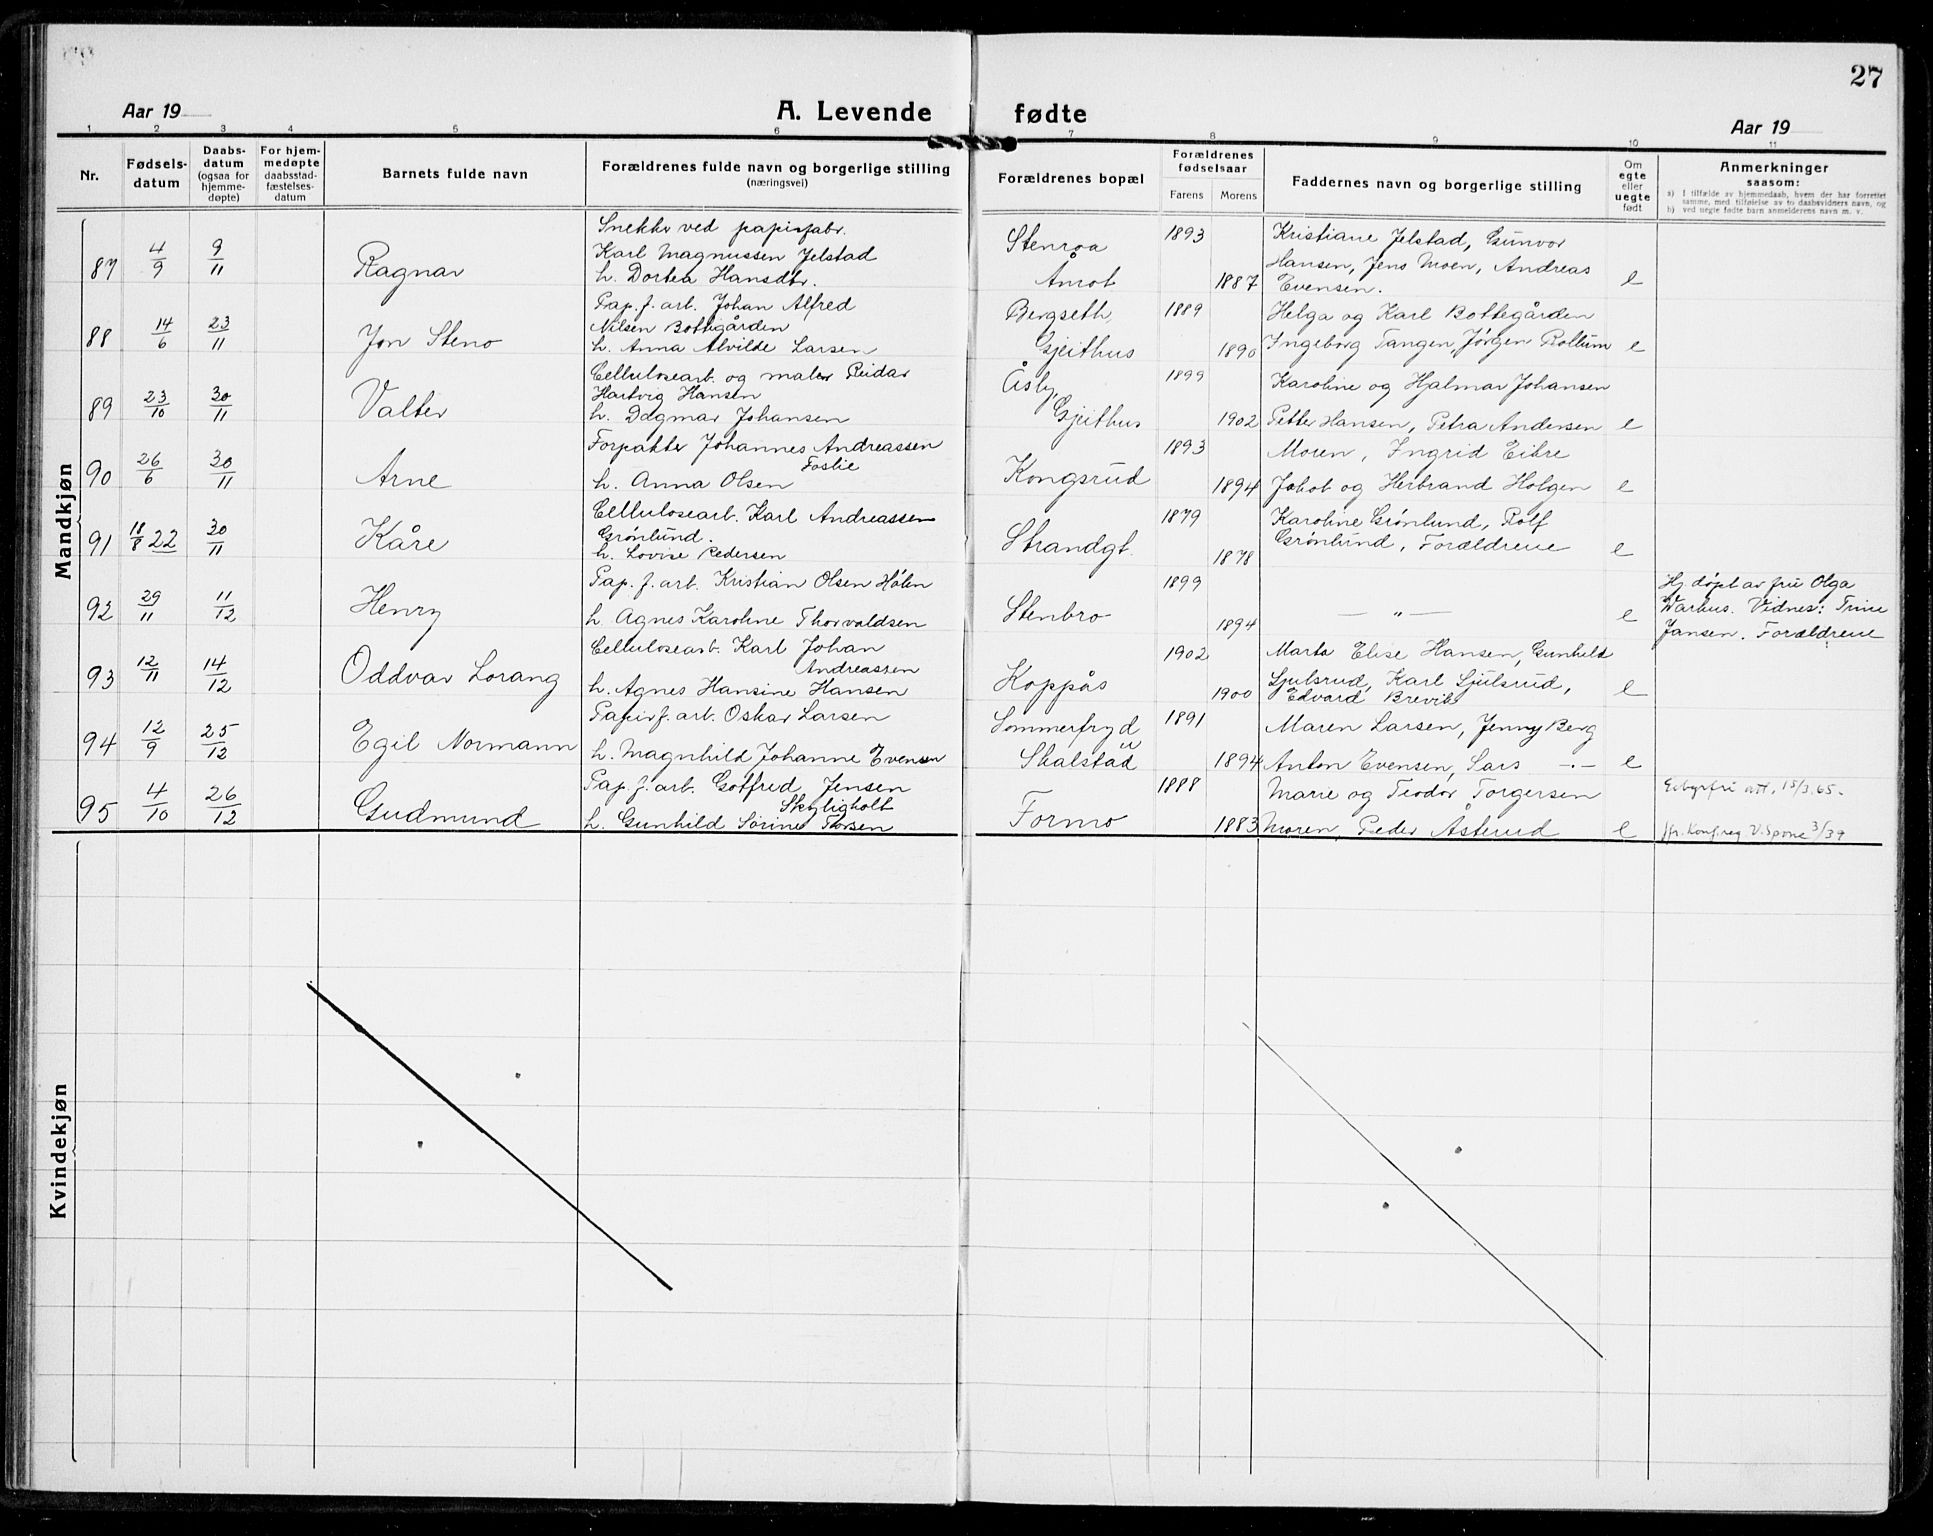 27
Aar 19
A. Levende
fødte
Aar 19
1 2 3 4 5 6 7 8 9 10 11
Nr.
Fødsels-
datum
Daabs-
datum
(ogsaa for
hjemme-
døpte)
For hjem-
medøpte
daabsstad-
fæstelses-
datum
Barnets fulde navn
Forældrenes fulde navn og borgerlige stilling
(næringsvei)
Forældrenes bopæl
Forældrenes
fødselsaar
Farens Morens
Faddernes navn og borgerlige stilling
Om
egte
eller
uegte
født
Anmerkninger
saasom:
a) I tilfælde av hjemmedaab, hvem der har forrettet
samme, med tilføielse av to daabsvidners navn, og
b) ved uegte fødte barn anmelderens navn m. v.
Mandkjøn
87 4/9 9/11 Ragnar
Snekker ved papirfabr.
Karl Magnussen Jelstad
h. Dortea Hansdtr.
Stenroa
Åmot
1893
1887
Kristiane Jelstad, Gunvor
Hansen, Jens Moen, Andreas
Evensen.
e
88 14/6 23/11 Jon Steno
Pap. f. arb. Johan Alfred
Nilsen Bottegården
h. Anna Alvilde Larsen
Bergseth,
Gjeithus
1889
1890
Helga og Karl Bottegården
Ingeborg Tangen, Jørgen Rollum
e
89 23/10 30/11 Valter
Cellulosearb. og maler Reidar
Hartvig Hansen
h. Dagmar Johansen
Åsly,
Gjeithus
1899
1902
Karoline og Hjalmar Johansen
Petter Hansen, Petra Andersen
e
90 26/6 30/11 Arne
Forpakter Johannes Andreassen
Foslie
h. Anna Olsen
Kongsrud
1893
1894
Moren, Ingrid Eikre
Jakob og Herbrand Holgen
e
91 18/8 22 30/11 Kåre
Cellulosearb. Karl Andreassen
Grønlund.
h. Lovise Pedersen
Strandgt.
1879
1878
Karoline Grønlund, Rolf
Grønlund, Forældrene
e
92 29/11 11/12 Henry
Pap. f. arb. Kristian Olsen Hølen
h. Agnes Karoline Thorvaldsen
Stenbro
1899
1894
— " —
e
Hj. døpt av fru Olga
Aarhus. Vidnes: Trine
Jansen. Forældrene
93 12/11 14/12 Oddvar Lorang
Cellulosearb. Karl Johan
Andreassen
h. Agnes Hansine Hansen
Koppås
1902
1900
Marta Elise Hansen, Gunhild
Sjulsrud, Karl Sjulsrud,
Edvard Brevik
e
94 12/9 25/12 Egil Normann
Papirf. arb. Oskar Larsen
h. Magnhild Johanne Evensen
Sommerfryd
Skalstad
1891
1894
Maren Larsen, Jenny Berg
Anton Evensen, Lars —·—
e
95 4/10 26/12 Gudmund
Pap. f. arb. Gotfred Jensen
Skyligholt
h. Gunhild Sørine Thorsen
Formo
1888
1883
Marie og Teodor Torgersen
Moren, Peder Åsterud
e
Gebyrfri att. 15/3.65.
jfr. Konf.reg V. Spone 3/39
Kvindekjøn